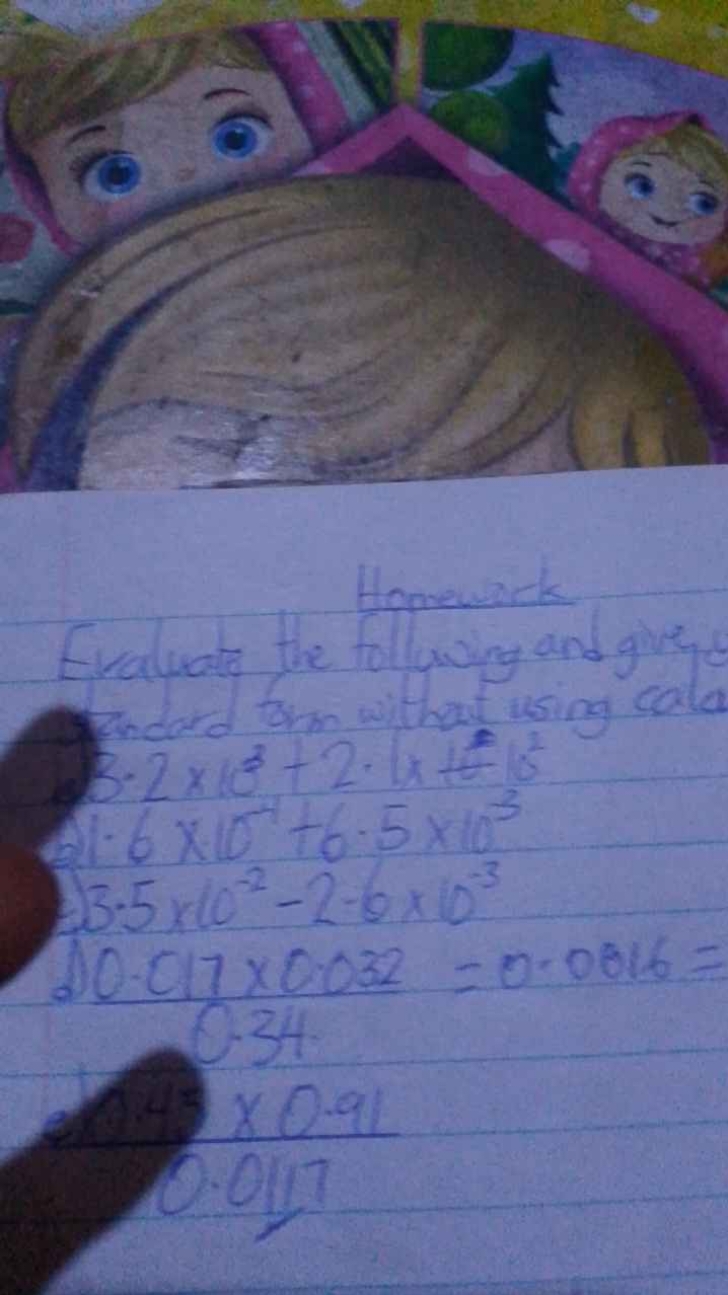 Homework
Evaluate the following and give
standard form without using
3.2 x 10³ + 2.1 x 10²
b) 1.6 x 10⁻⁴ + 6.5 x 10⁻³
c) 3.5 x 10⁻² - 2.6 x 10⁻³
d) 0.017 x 0.032 = 0.0016 =
0.34
e) 0.45 x 0.91
0.0117